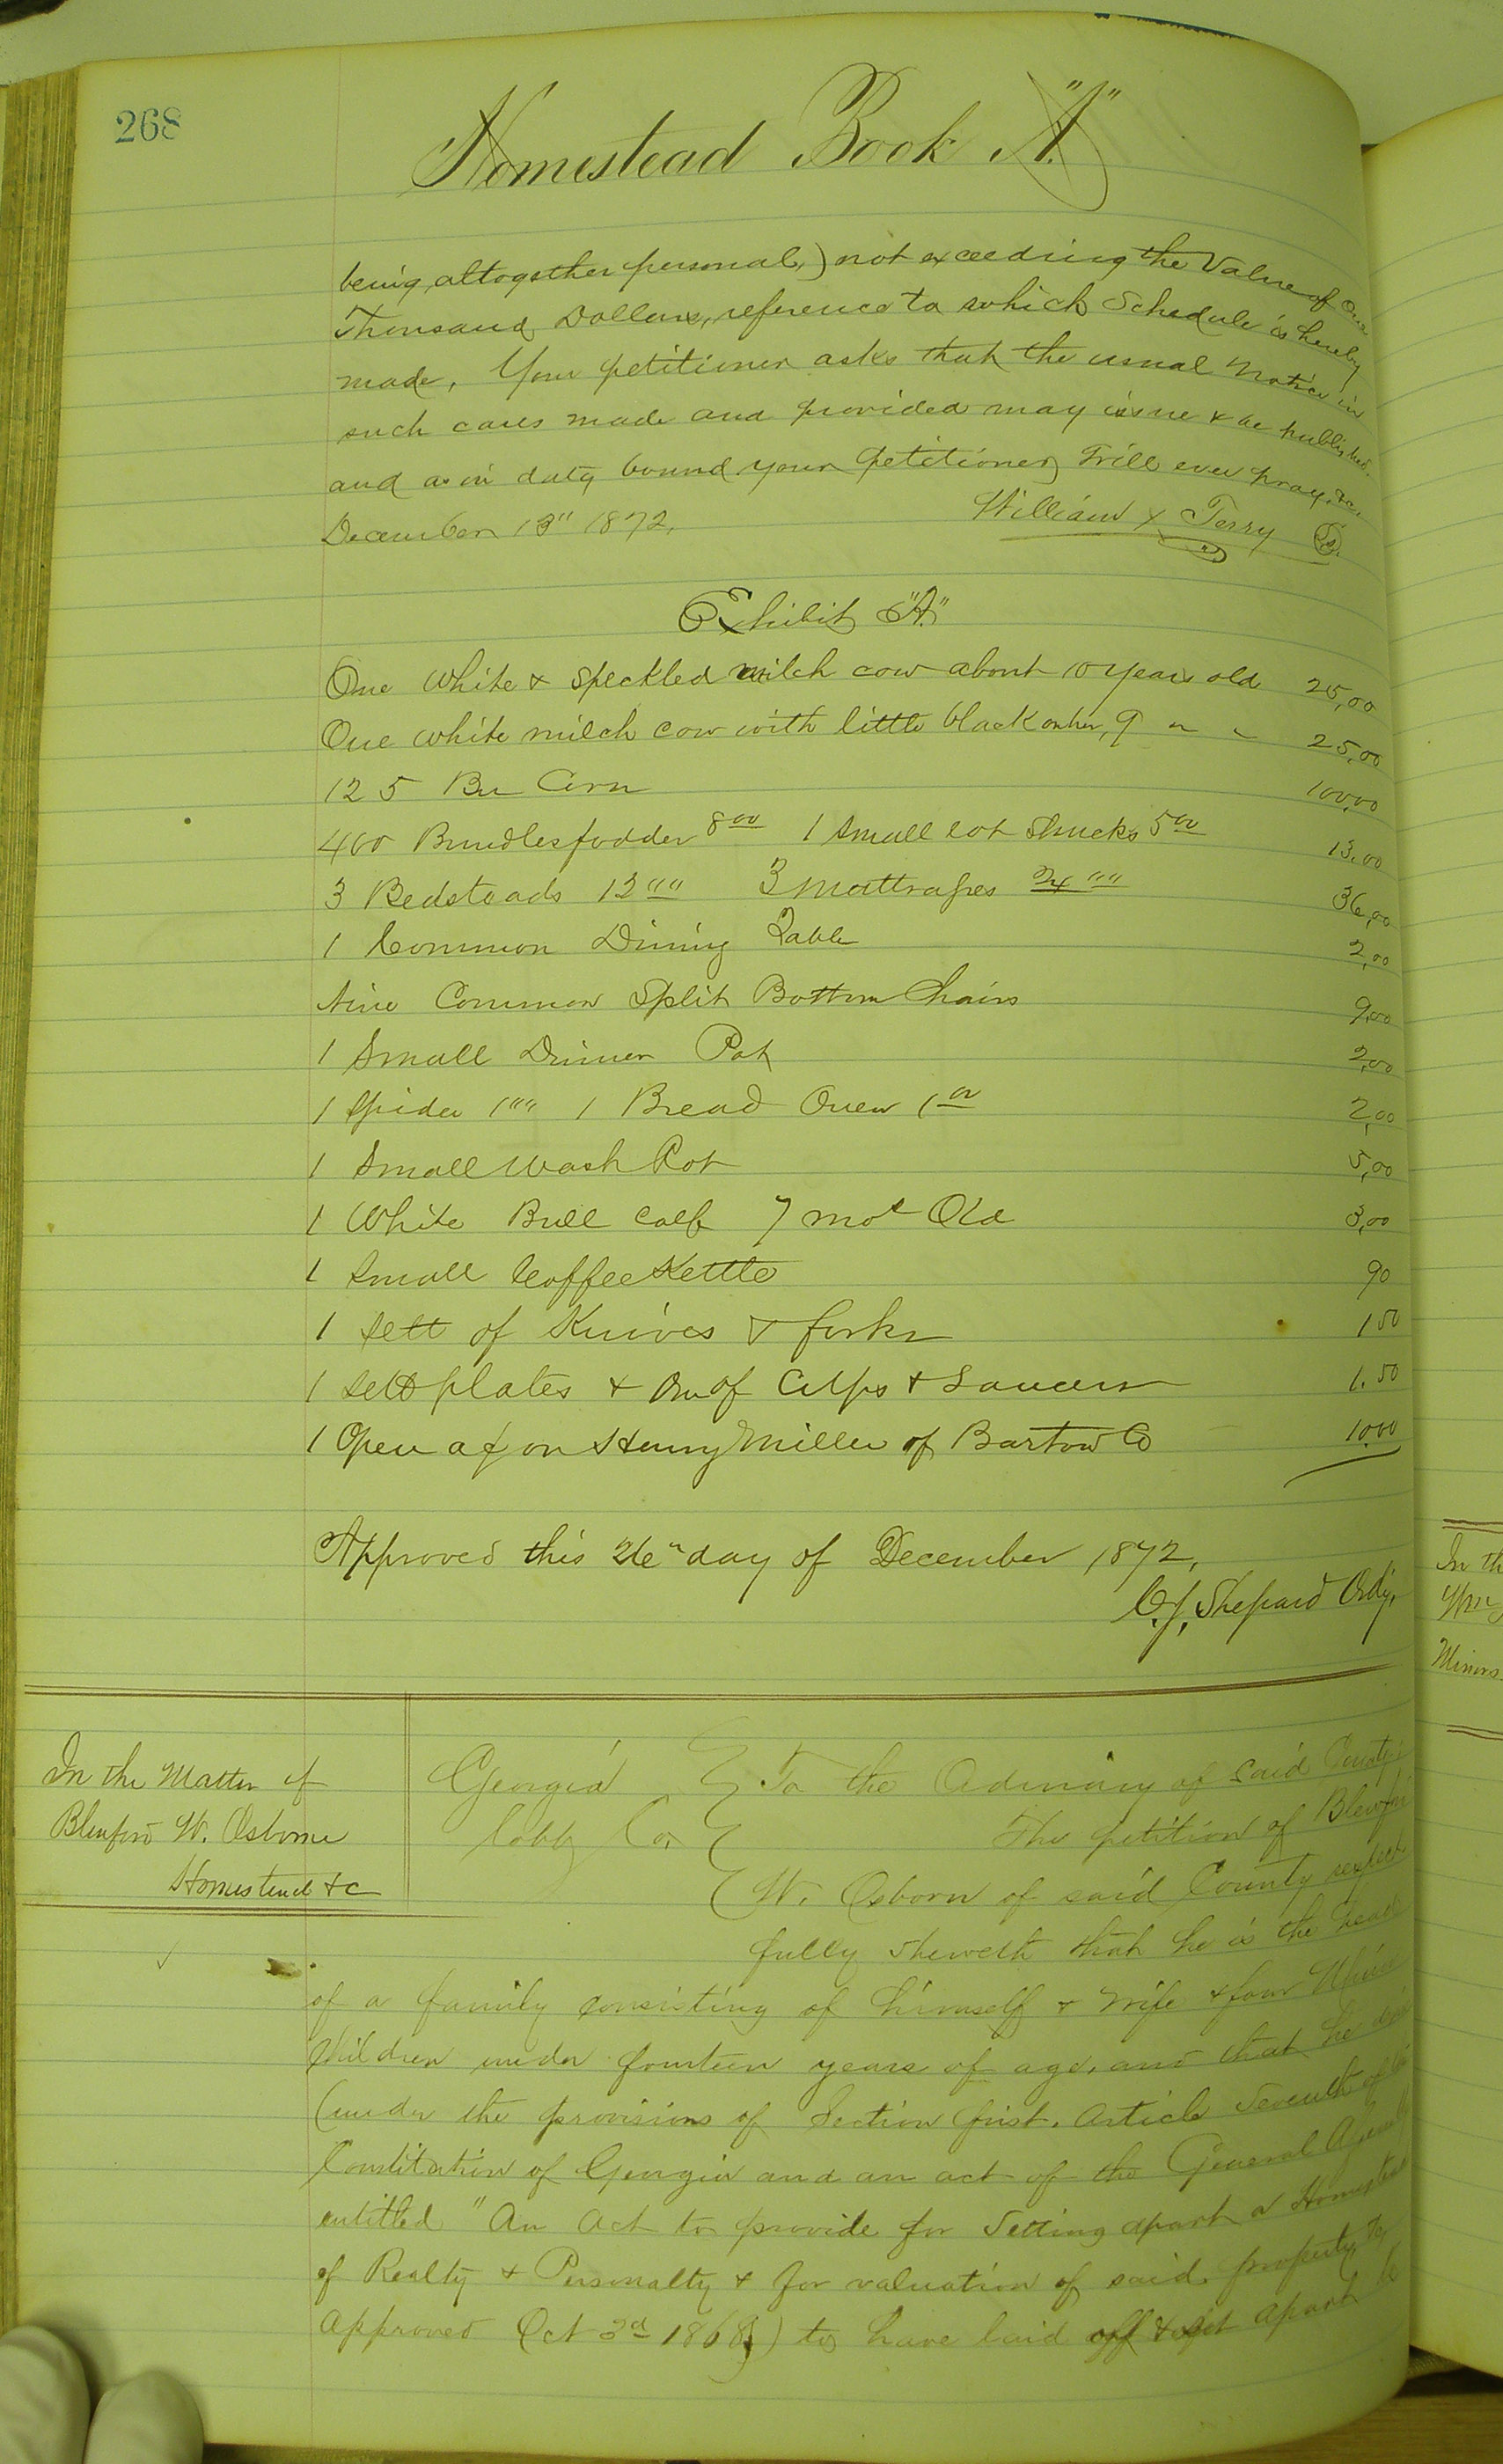 268
Homestead Book "A."
being altogether personal,) not exceeding the Value of One
Thousand Dollars, reference to which Schedule is hereby
made, Your petitioner asks that the usual notice in
such cases made and provided may issue & be published.
and as in duty bound your petitioner will ever pray, &c.
December 13" 1872,
William X Terry
Exhibit "A."
One White & Speckled milch cow about 10 years old 25,00
One white milch cow with little black on her, 9 " " 25,00
125 Bu Corn 100,00
400 Bundles fodder 8 00 1 Small lot Shucks 5 00 13,00
3 Bedsteads 12 "" 3 Mattrasses 24 "" 36,00
1 Common Dining Table 2,00
Nine Common Split Bottom Chairs 9,00
1 Small Dinner Pot 2,00
1 Spider 1 "" 1 Bread Oven 1 00 2,00
1 Small Wash Pot 5,00
1 White Bull calf 7 mos Old 3,00
1 Small Coffee Kettle 90
1 Sett of Knives & forks 1 50
1 Sett plates & One of Cups & Saucers 1.50
1 Open a/c on Henry Miller of Bartow Co 10.00
Approved this 26" day of December 1872,
C. J. Shepard Ordy.
In the
Wm
Minors.
In the Matter of
Blenford W. Osborne
Homestead &c
Georgia To the Ordinary of said County:
Cobb Co. The petition of
W. Osborn of said County respect
fully sheweth that he is the head
of a family consisting of himself & wife & four
Children under fourteen years of age, and that he
(under the provisions of Section first, Article Seventh of
Constitution of Georgia and an act of the General Assembly
entitled "An Act to provide for Setting apart a Homestead
of Realty & Personalty & for valuation of said property, &c
approved Oct 3d 1868,) to have laid off & set apart